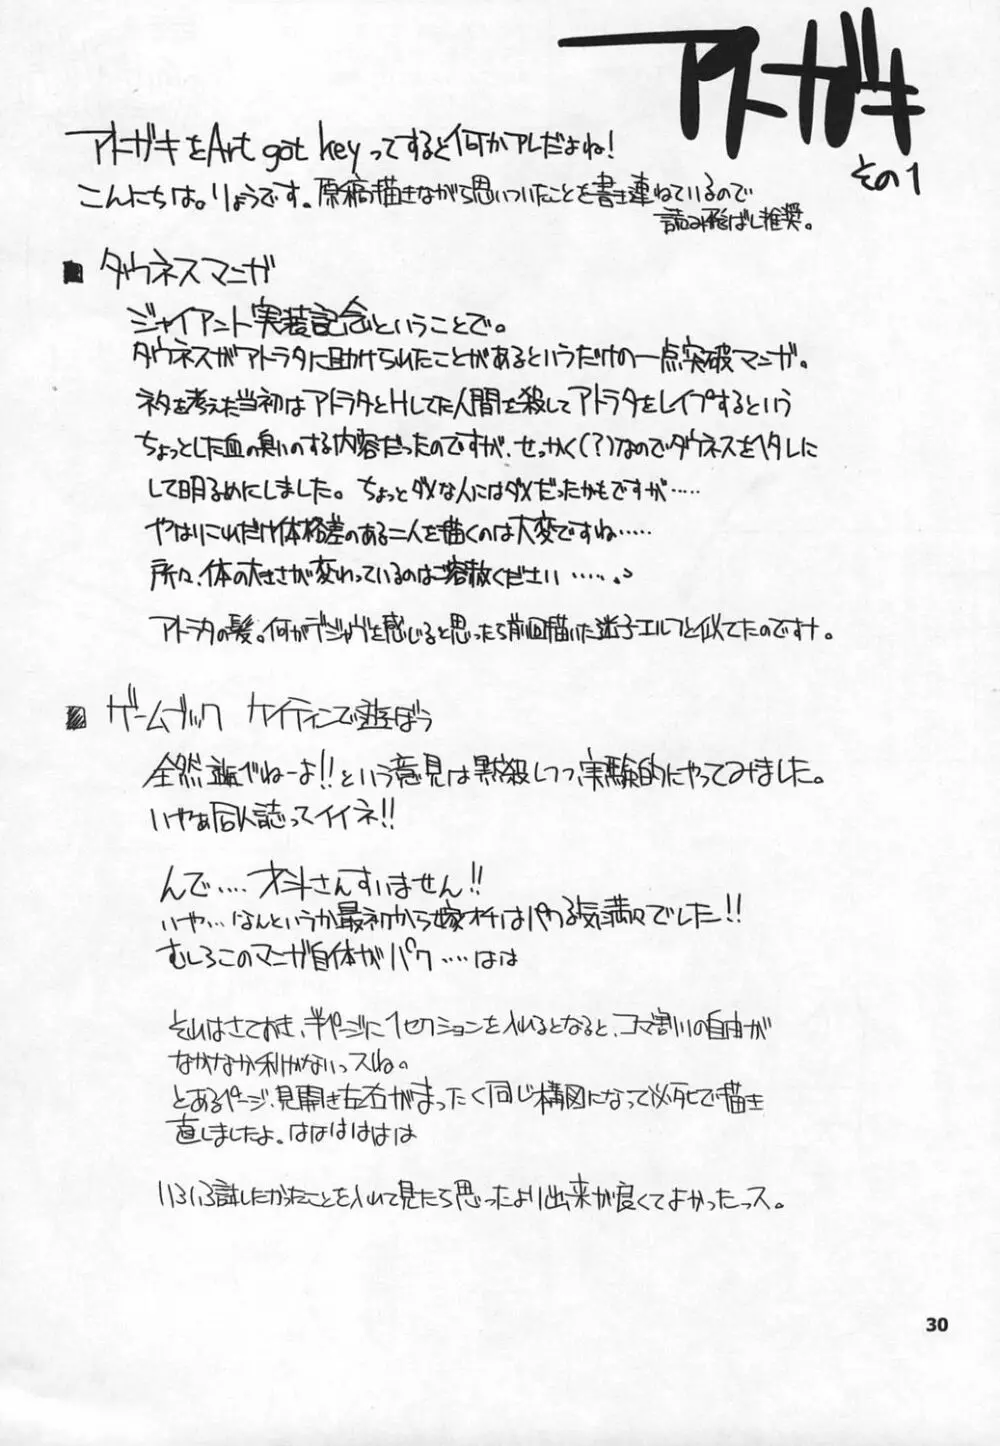 アトガキ
その1
アトーガキをArt got keyってすると何かアレだよね!
こんにちは。りょうです。原稿描きながら思いついたことを書き連ねているので
読み飛ばし推奨。
■ タウネスマンガ
ジャイアント実装記念ということで。
タウネスがアトラタに助けられたことがあるというだけの一点突破マンガ。
ネタを考えた当初はアトラタとHしてた人間を殺してアトラタをレイプするという
ちょっとした血の臭いのする内容だったのですが、せっかく(?)なのでタウネスをヘタレに
して明るめにしました。ちょっとダメな人にはダメだったかもですが……
やはりこれだけ体格差のある二人を描くのは大変ですね……
所々、体の大きさが変わっているのはご容赦ください……。
アトラタの髪。何かデジャヴを感じると思ったら前回描いた迷子エルフと似てたのですナ。
■ ゲームブック ケイティンで遊ぼう
全然遊べねーよ!!という意見は黙殺しつつ、実験的にやってみました。
いやぁ同人誌ってイイネ!!
んで……才斗さんすいません!!
いや…なんというか最初から嫁オチはパクる気満々でした!!
むしろこのマンガ自体がパク……はは
それはさておき、半ページに1セクションを入れるとなると、コマ割りの自由が
なかなか利かないっスね。
とあるページ、見開き左右がまったく同じ構図になって必死で描き
直しましたよ。はははははは
いろいろ試したかったことを入れて見たら思ったより出来が良くてよかったっス。
30